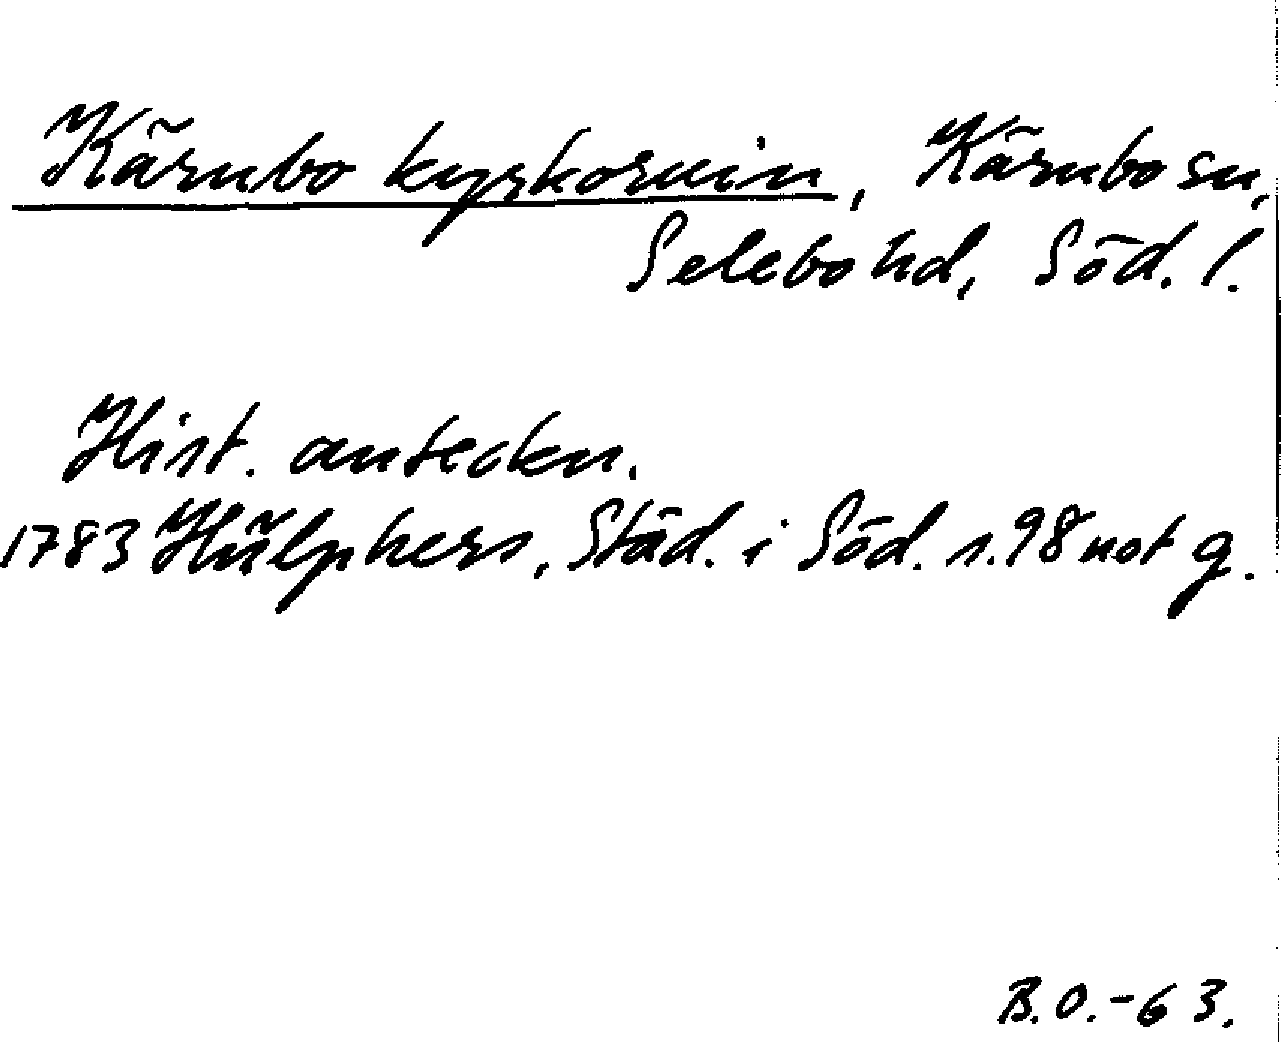 Kärnbo kyrkoruin, Kärnbo sn,
Selebo hd, Söd. l.
Hist. anteckn.
1783 Hülphers, Städ. i Söd. s. 98 not g.
B.O.-63.